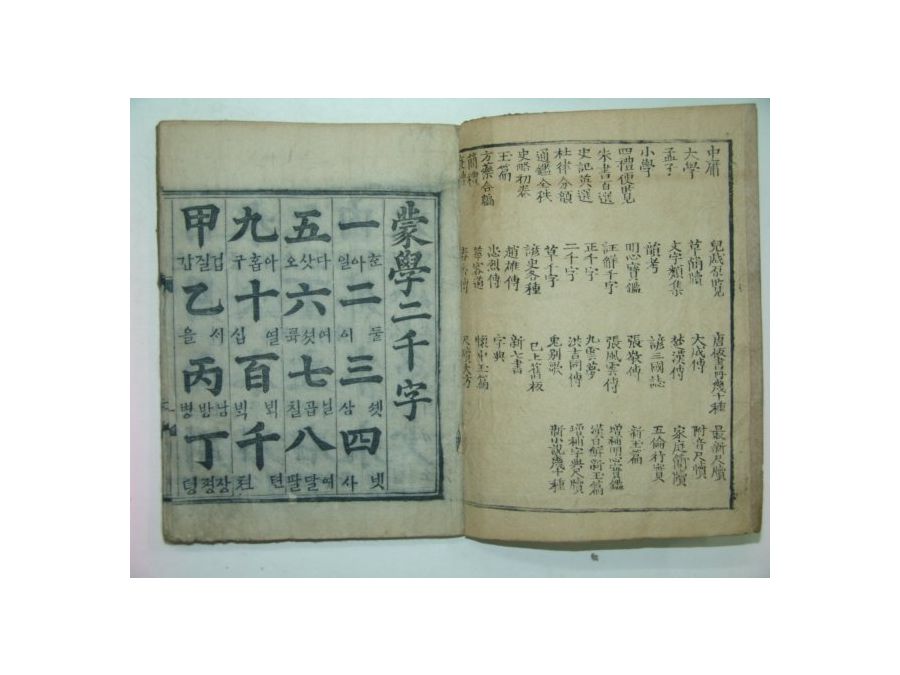 中庸 兒戱原覽 唐板書冊幾十種 最新尺牘
大學 草簡牘 大成傳 附音尺牘
孟子 文字類集 楚漢傳 家庭簡牘
小學 韻考 諺三國誌 五倫行實
四禮便覽 明心寶鑑 張敬傳 新玉篇
朱書百選 註解千字 張風雲傳 增補明心寶鑑
史記英選 正千字 九雲夢 漢日鮮新玉篇
杜律分韻 二千字 洪吉同傳 增補字典尺牘
通鑑全秩 草千字 鬼別歌 新小說幾十種
史略初卷 諺史各種 已上舊板
玉篇 趙雄傳 新七書
方藥合編 忠烈傳 字典
簡禮 華容道 懷中玉篇
尺牘大方
蒙學二千字
一 호아일 二 둘이 三 솃삼 四 넷사
五 다삿오 六 여섯륙 七 닐곱칠 八 여달팔
九 아홉구 十 열십 百 빅빅 千 쳔쳔
甲 겁질갑 乙 서을 丙 남방병 丁 장졍뎡